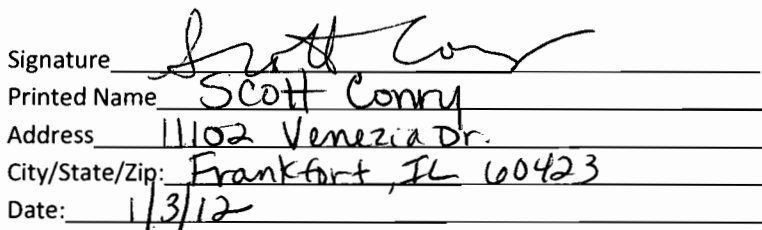 Signature Scott Conry
Printed Name Scott Conry
Address 11102 Venezia Dr.
City/State/Zip: Frankfort, IL 60423
Date: 1/3/12